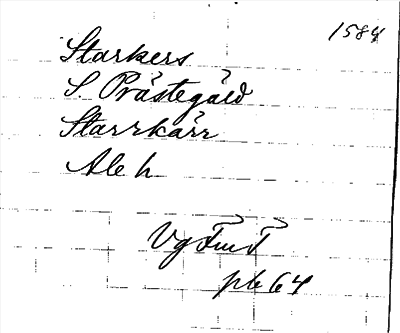 1584
Starkers
S. Prästegård
Starrkärr
Ale h
Vg FmT
pl 64